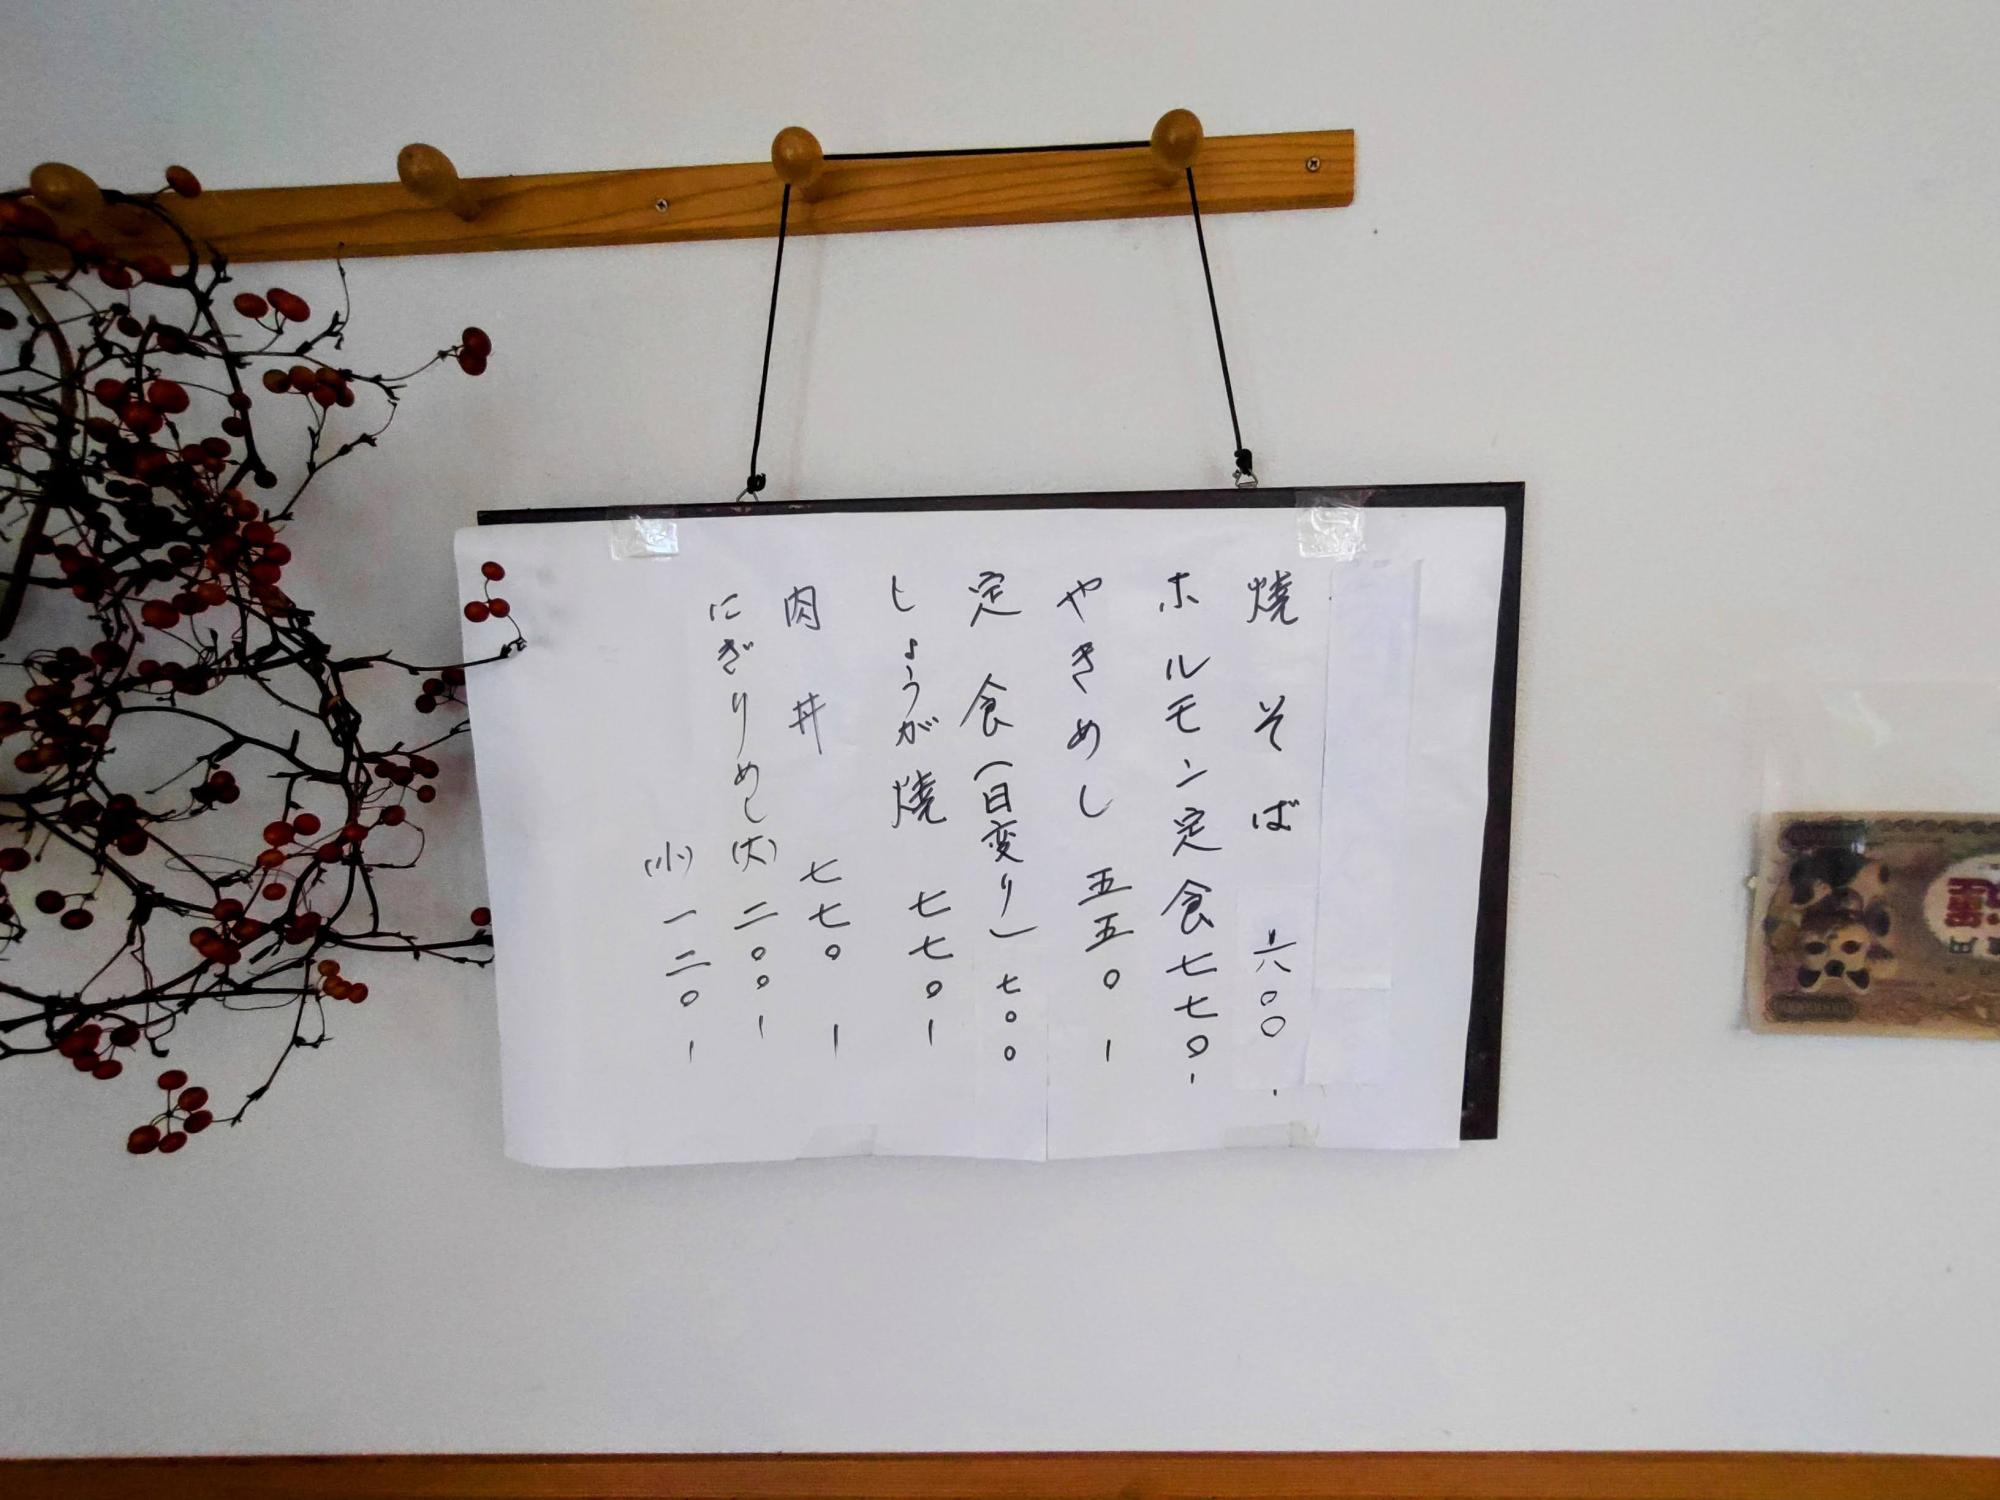 焼そば 六〇〇、
ホルモン定食七七〇、
やきめし 五五〇ー
定食(日変り) 七〇〇
しょうが焼 七七〇ー
肉丼 七七〇ー
にぎりめし(大)二〇〇ー
(小)一二〇ー